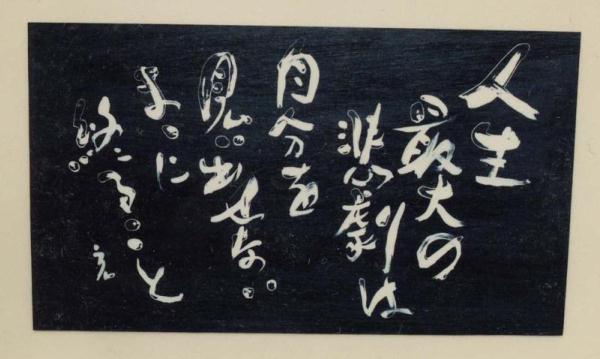 人生
最大の
悲劇は
自分を
見い出せない
まゝに
終ること